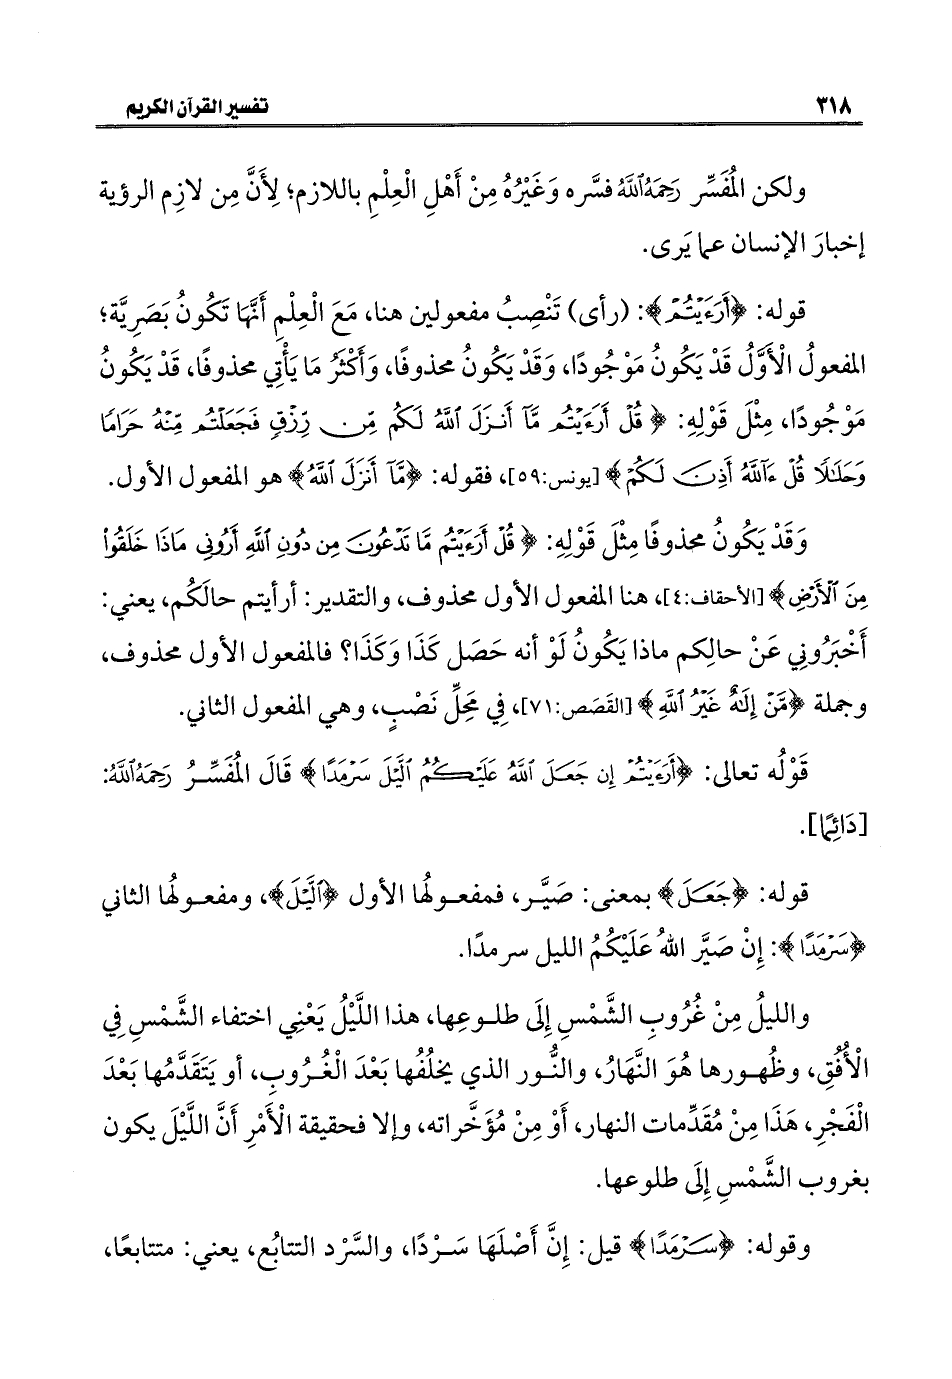 ٣١٨ تفسير القرآن الكريم
ولكن المُفَسِّر رَحِمَهُ ٱللَّهُ فسَّره وَغَيْرُهُ مِنْ أَهْلِ الْعِلْمِ باللازم؛ لِأَنَّ مِن لازِم الرؤية
إخبارَ الإنسان عما يَرى.
قوله: ﴿أَرَءَيْتُمْ﴾: (رأى) تَنْصِبُ مفعولين هنا، مَعَ الْعِلْمِ أَنَّهَا تَكُونُ بَصَرِيَّة؛
المفعولُ الْأَوَّلُ قَدْ يَكُونُ مَوْجُودًا، وَقَدْ يَكُونُ محذوفًا، وَأَكْثَرُ مَا يَأْتِي محذوفًا، قَدْ يَكُونُ
مَوْجُودًا، مِثْلَ قَوْلِهِ: ﴿قُلْ أَرَءَيْتُم مَّآ أَنزَلَ ٱللَّهُ لَكُم مِّن رِّزْقٍ فَجَعَلْتُم مِّنْهُ حَرَامًا
وَحَلَٰلًا قُلْ ءَآللَّهُ أَذِنَ لَكُمْ﴾ [يونس:٥٩]، فقوله: ﴿مَّآ أَنزَلَ ٱللَّهُ﴾ هو المفعول الأول.
وَقَدْ يَكُونُ محذوفًا مِثْلَ قَوْلِهِ: ﴿قُلْ أَرَءَيْتُم مَّا تَدْعُونَ مِن دُونِ ٱللَّهِ أَرُونِي مَاذَا خَلَقُوا۟
مِنَ ٱلْأَرْضِ﴾ [الأحقاف:٤]، هنا المفعول الأول محذوف، والتقدير: أرأيتم حالَكُم، يعني:
أَخْبَرُونِي عَنْ حالِكم ماذا يَكُونُ لَوْ أنه حَصَل كَذَا وَكَذَا؟ فالمفعول الأول محذوف،
وجملة ﴿مَّنْ إِلَٰهٌ غَيْرُ ٱللَّهِ﴾ [القَصَص:٧١]، فِي مَحَلِّ نَصْبٍ، وهي المفعول الثاني.
قَوْلُه تعالى: ﴿أَرَءَيْتُمْ إِن جَعَلَ ٱللَّهُ عَلَيْكُمُ ٱلَّيْلَ سَرْمَدًا﴾ قَالَ المُفَسِّرُ رَحِمَهُ ٱللَّهُ:
[دَائِمًا].
قوله: ﴿جَعَلَ﴾ بمعنى: صَيَّر، فمفعولُها الأول ﴿ٱلَّيْلَ﴾، ومفعولُها الثاني
﴿سَرْمَدًا﴾: إِنْ صَيَّر اللهُ عَلَيْكُمُ الليل سرمدًا.
والليلُ مِنْ غُرُوبِ الشَّمْسِ إِلَى طلوعِها، هذا اللَّيْلُ يَعْنِي اختفاء الشَّمْسِ فِي
الْأُفُقِ، وظُهورها هُوَ النَّهَارُ، والنُّور الذي يخلُفُها بَعْدَ الْغُرُوبِ، أو يَتَقَدَّمُها بَعْدَ
الْفَجْرِ، هَذَا مِنْ مُقَدِّمات النهار، أَوْ مِنْ مُؤَخَّراته، وإلا فحقيقة الْأَمْرِ أَنَّ اللَّيْلَ يكون
بغروب الشَّمْسِ إِلَى طلوعها.
وقوله: ﴿سَرْمَدًا﴾ قيل: إِنَّ أَصْلَهَا سَرْدًا، والسَّرْد التتابُع، يعني: متتابعًا،